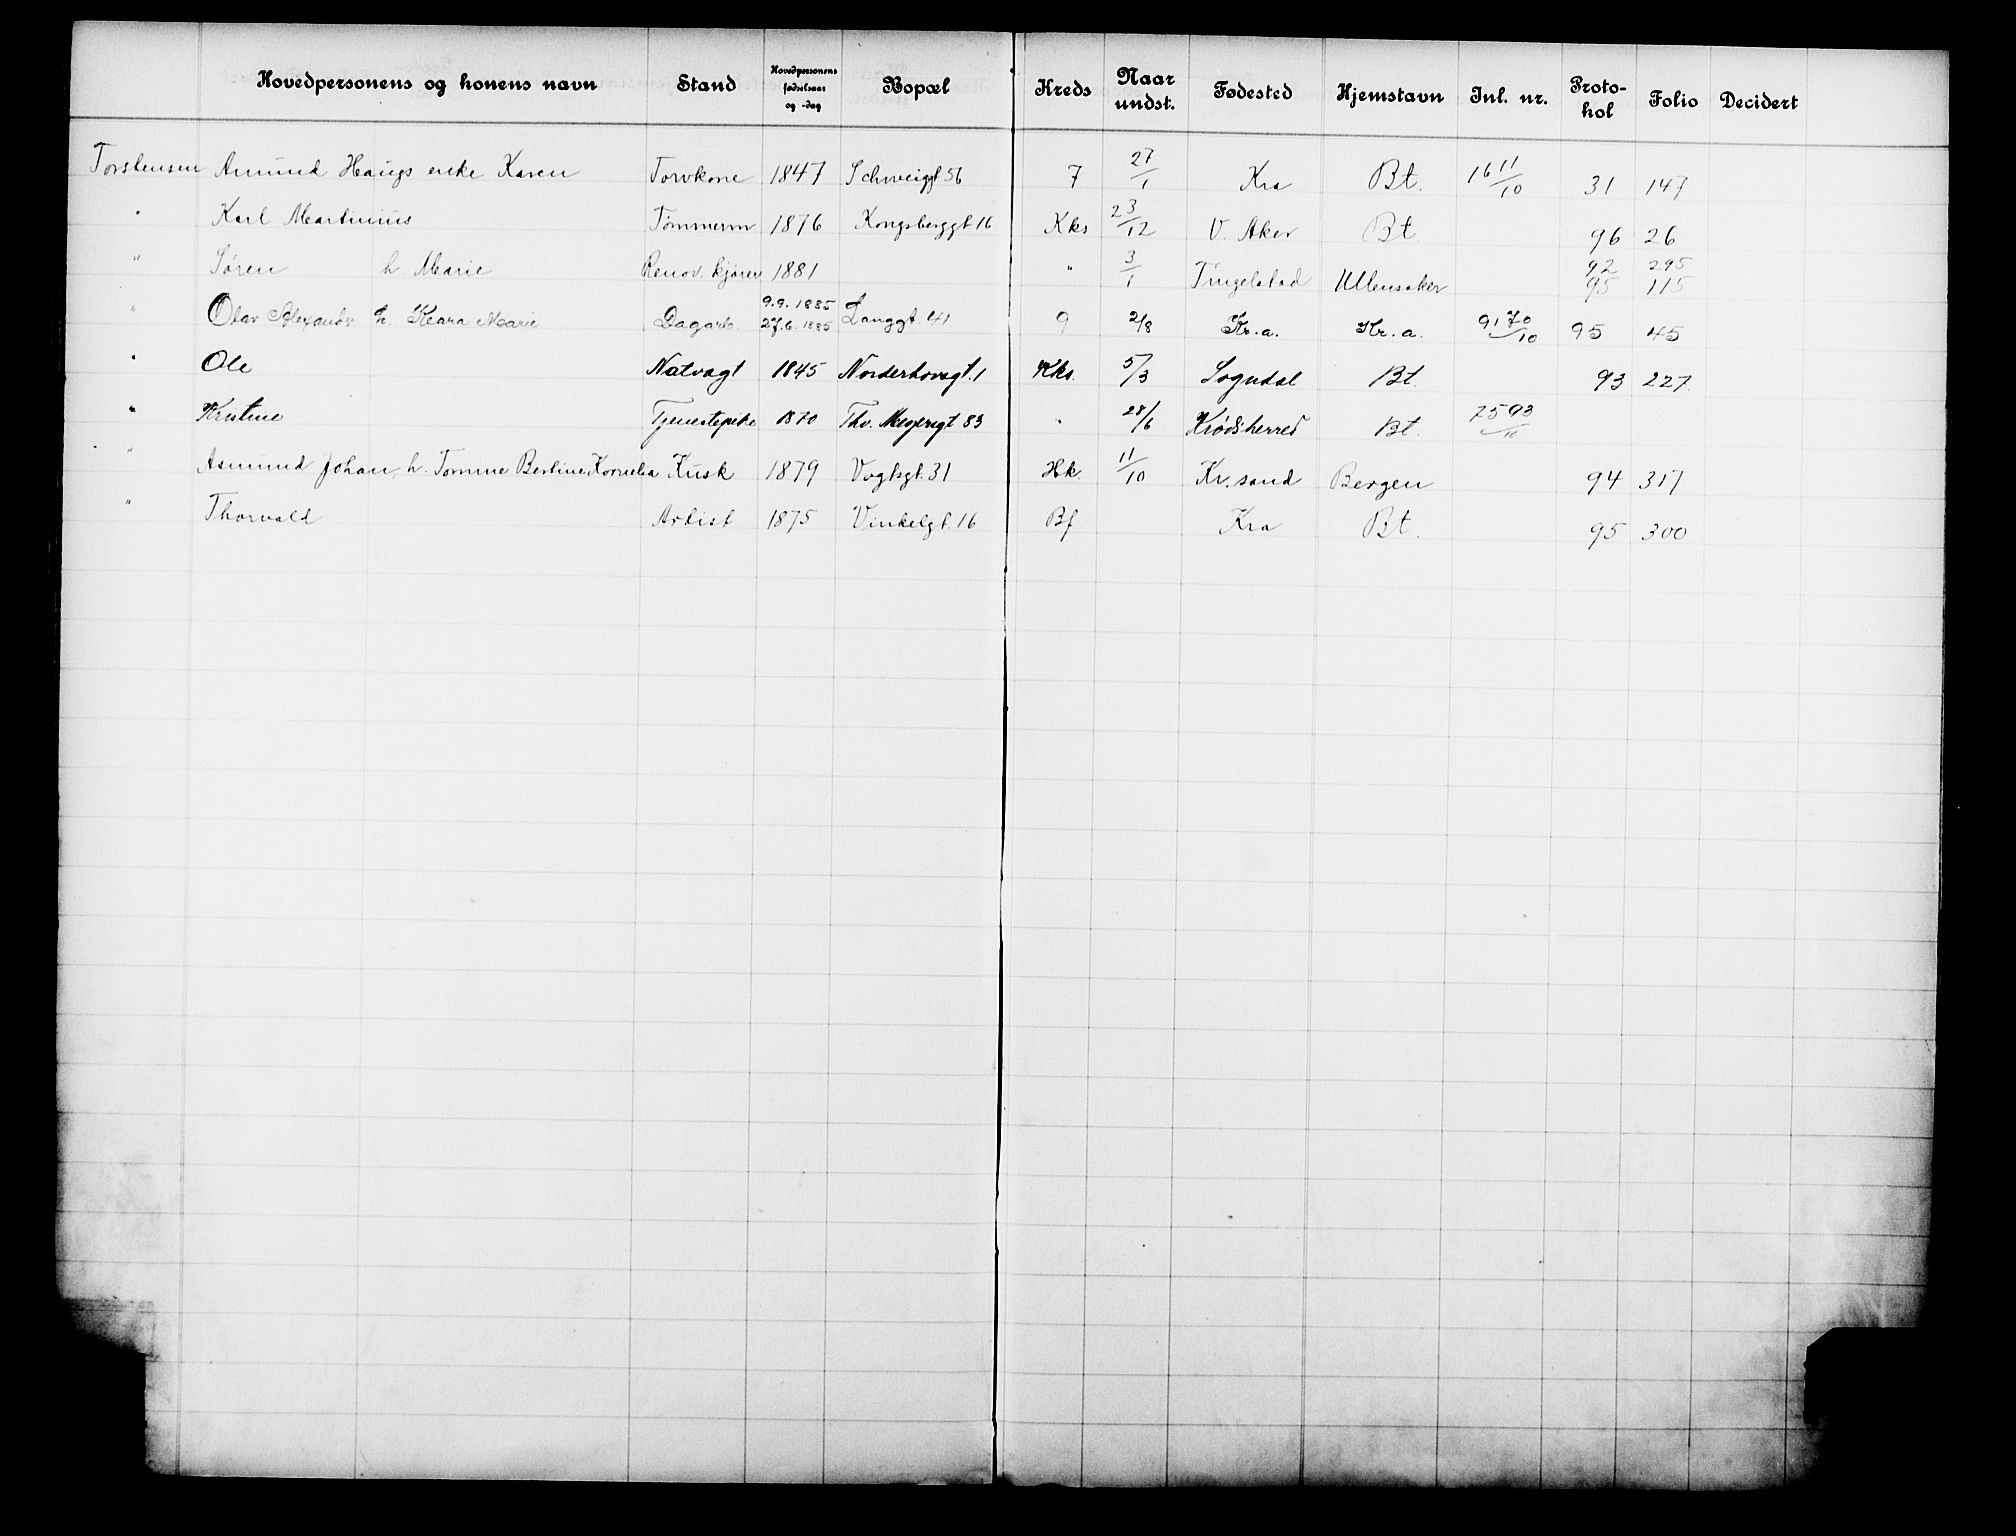 Hovedpersonens og konens navn Stand Hovedpersonens fødselsaar og -dag Bopæl Kreds Naar undst. Fødested Hjemstavn Inl. nr. Protokol Folio Decidert
Torstensen Amund Haugs enke Karen Torvkone 1847 Schweigt 56 7 27/1 Kra Bt. 16 11/10 31 147
" Karl Martinius Tømmerm 1876 Kongsberggt 16 Kks 23/12 V. Aker Bt. 96 26
" Søren h Marie Renov. kjører 1881 " 3/1 Tingelstad Ullensaker 92 95 295 115
" Olav Alexander h. Klara Marie Dagarb. 9.9.1885 27.6.1885 Langgt. 41 9 2/8 Kr.a. Kr.a. 9170/10 95 45
" Ole Natvagt 1845 Norderhovsgt. 1 Kks. 5/3 Sogndal Bt. 93 227.
" Kristine Tjenestepike 1870 Thv. Meyersgt 83 " 28/6 Krødsherred Bt. 7593/10
" Asmund Johan, h. Tomine Bertine Kornelia Kusk 1879 Vogtsgt. 31 Hk. 11/10 Kr.sand Bergen 94 317
" Thorvald Artist 1875 Vinkelgt. 16 Bf Kra Bt. 95 300